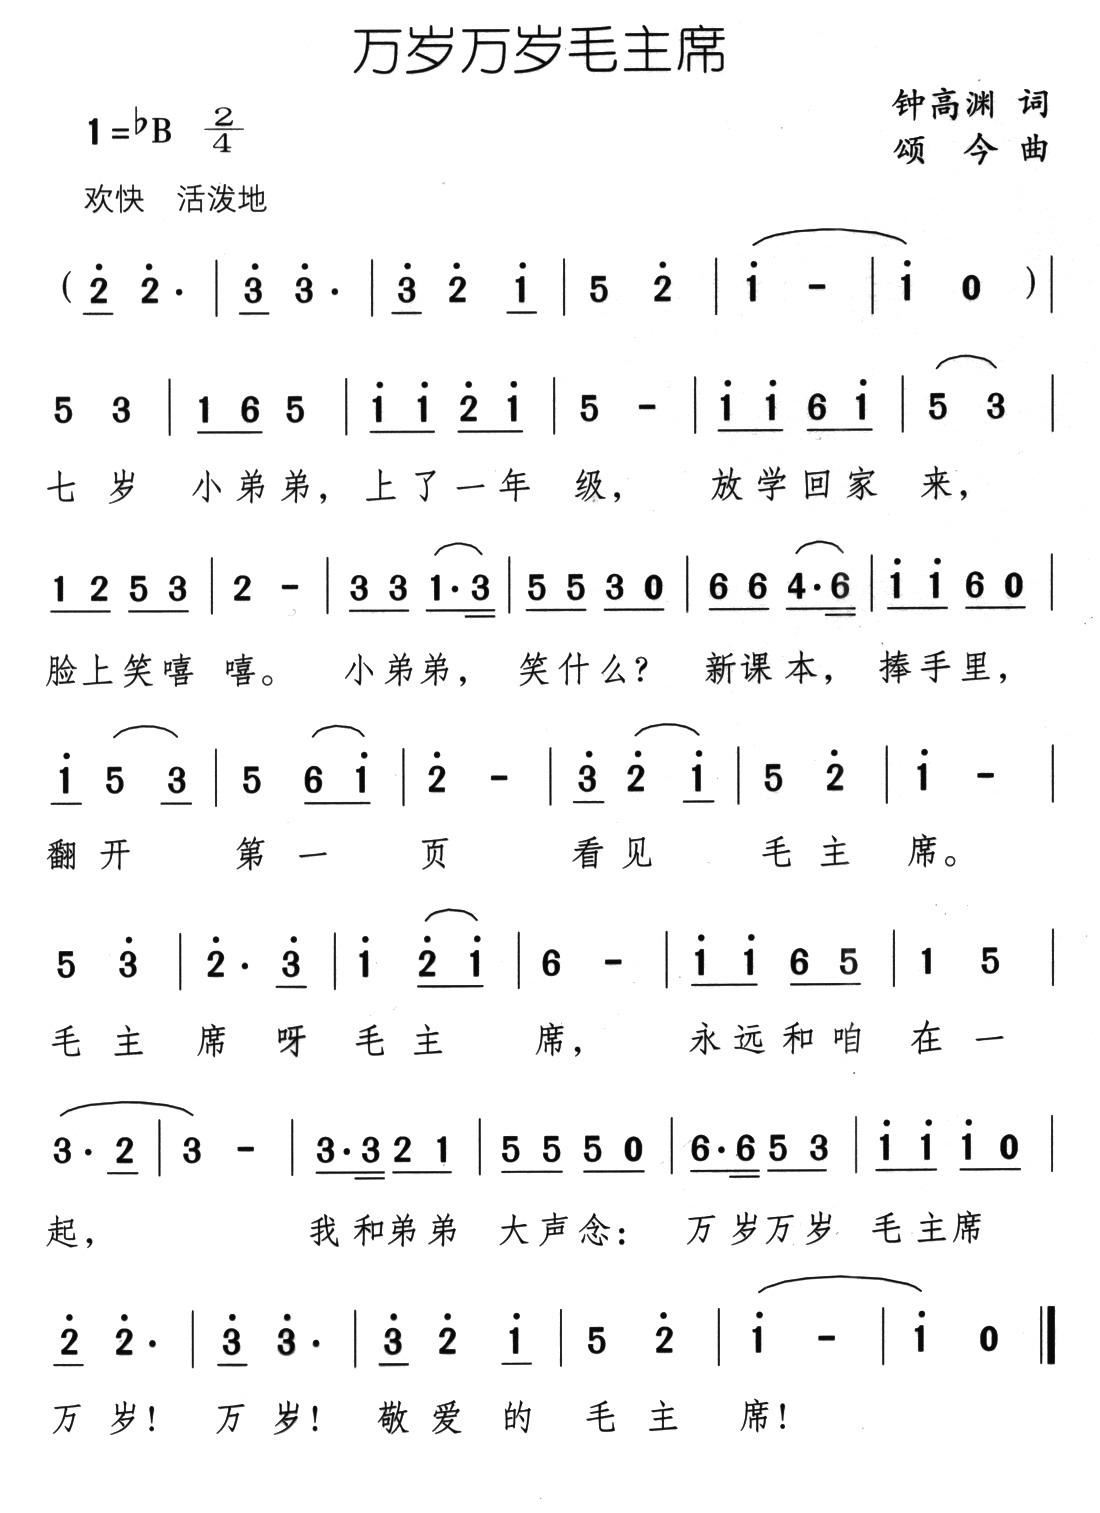 万岁万岁毛主席
1=♭B 2/4
钟高渊 词
颂 今 曲
欢快 活泼地
( 2̇ 2̇· | 3̇ 3̇· | 3̇ 2̇ 1̇ | 5 2̇ | 1̇ - | 1̇ 0 ) |
5 3 | 1 6 5 | 1̇ 1̇ 2̇ 1̇ | 5 - | 1̇ 1̇ 6 1̇ | 5 3 |
七 岁 小 弟 弟, 上 了 一 年 级, 放 学 回 家 来,
1 2 5 3 | 2 - | 3 3 1·3 | 5 5 3 0 | 6 6 4·6 | 1̇ 1̇ 6 0 |
脸上笑嘻 嘻。 小弟弟, 笑什么? 新课本, 捧手里,
1̇ 5 3 | 5 6 1̇ | 2̇ - | 3̇ 2̇ 1̇ | 5 2̇ | 1̇ - |
翻 开 第 一 页 看 见 毛 主 席。
5 3̇ | 2̇· 3̇ | 1̇ 2̇ 1̇ | 6 - | 1̇ 1̇ 6 5 | 1 5 |
毛 主 席 呀 毛 主 席, 永 远 和 咱 在 一
3· 2 | 3 - | 3·3 2 1 | 5 5 5 0 | 6·6 5 3 | 1̇ 1̇ 1̇ 0 |
起, 我 和 弟 弟 大 声 念: 万 岁 万 岁 毛 主 席
2̇ 2̇· | 3̇ 3̇· | 3̇ 2̇ 1̇ | 5 2̇ | 1̇ - | 1̇ 0 ‖
万 岁! 万 岁! 敬 爱 的 毛 主 席!